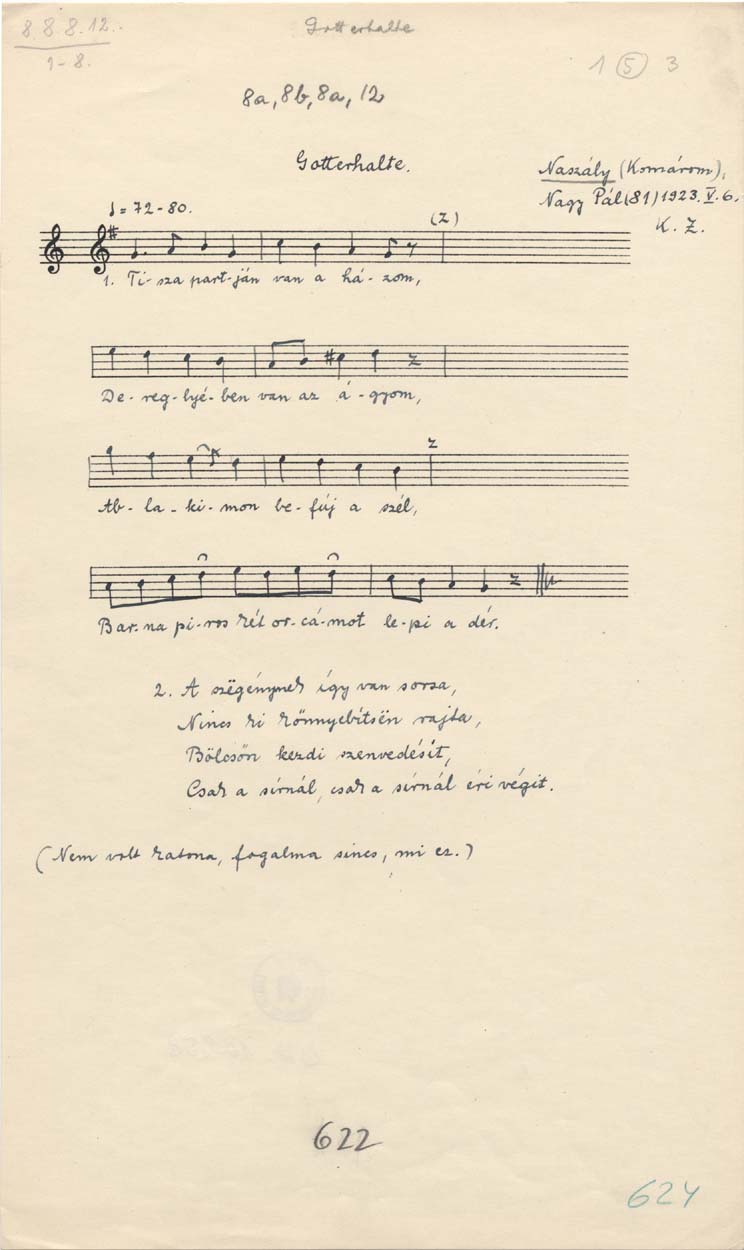 8. 8. 8. 12.
1-8.
Gotterhalte
1 5 3
8a, 8b, 8a, 12
Gotterhalte.
Naszály (Komárom),
Nagy Pál (81) 1923. V. 6.
K. Z.
♩ = 72-80.
(z)
1. Ti-sza part-ján van a há-zom,
De-reg-lyé-ben van az á-gyom,
Ab-la-ki-mon be-fúj a szél,
Bar-na pi-ros két or-cá-mot le-pi a dér.
2. A szëgénynek így van sorsa,
Nincs ki könnyebítsën rajta,
Bölcsőn kezdi szenvedésít,
Csak a sírnál, csak a sírnál éri végit.
(Nem volt katona, fogalma sincs, mi ez.)
622
624